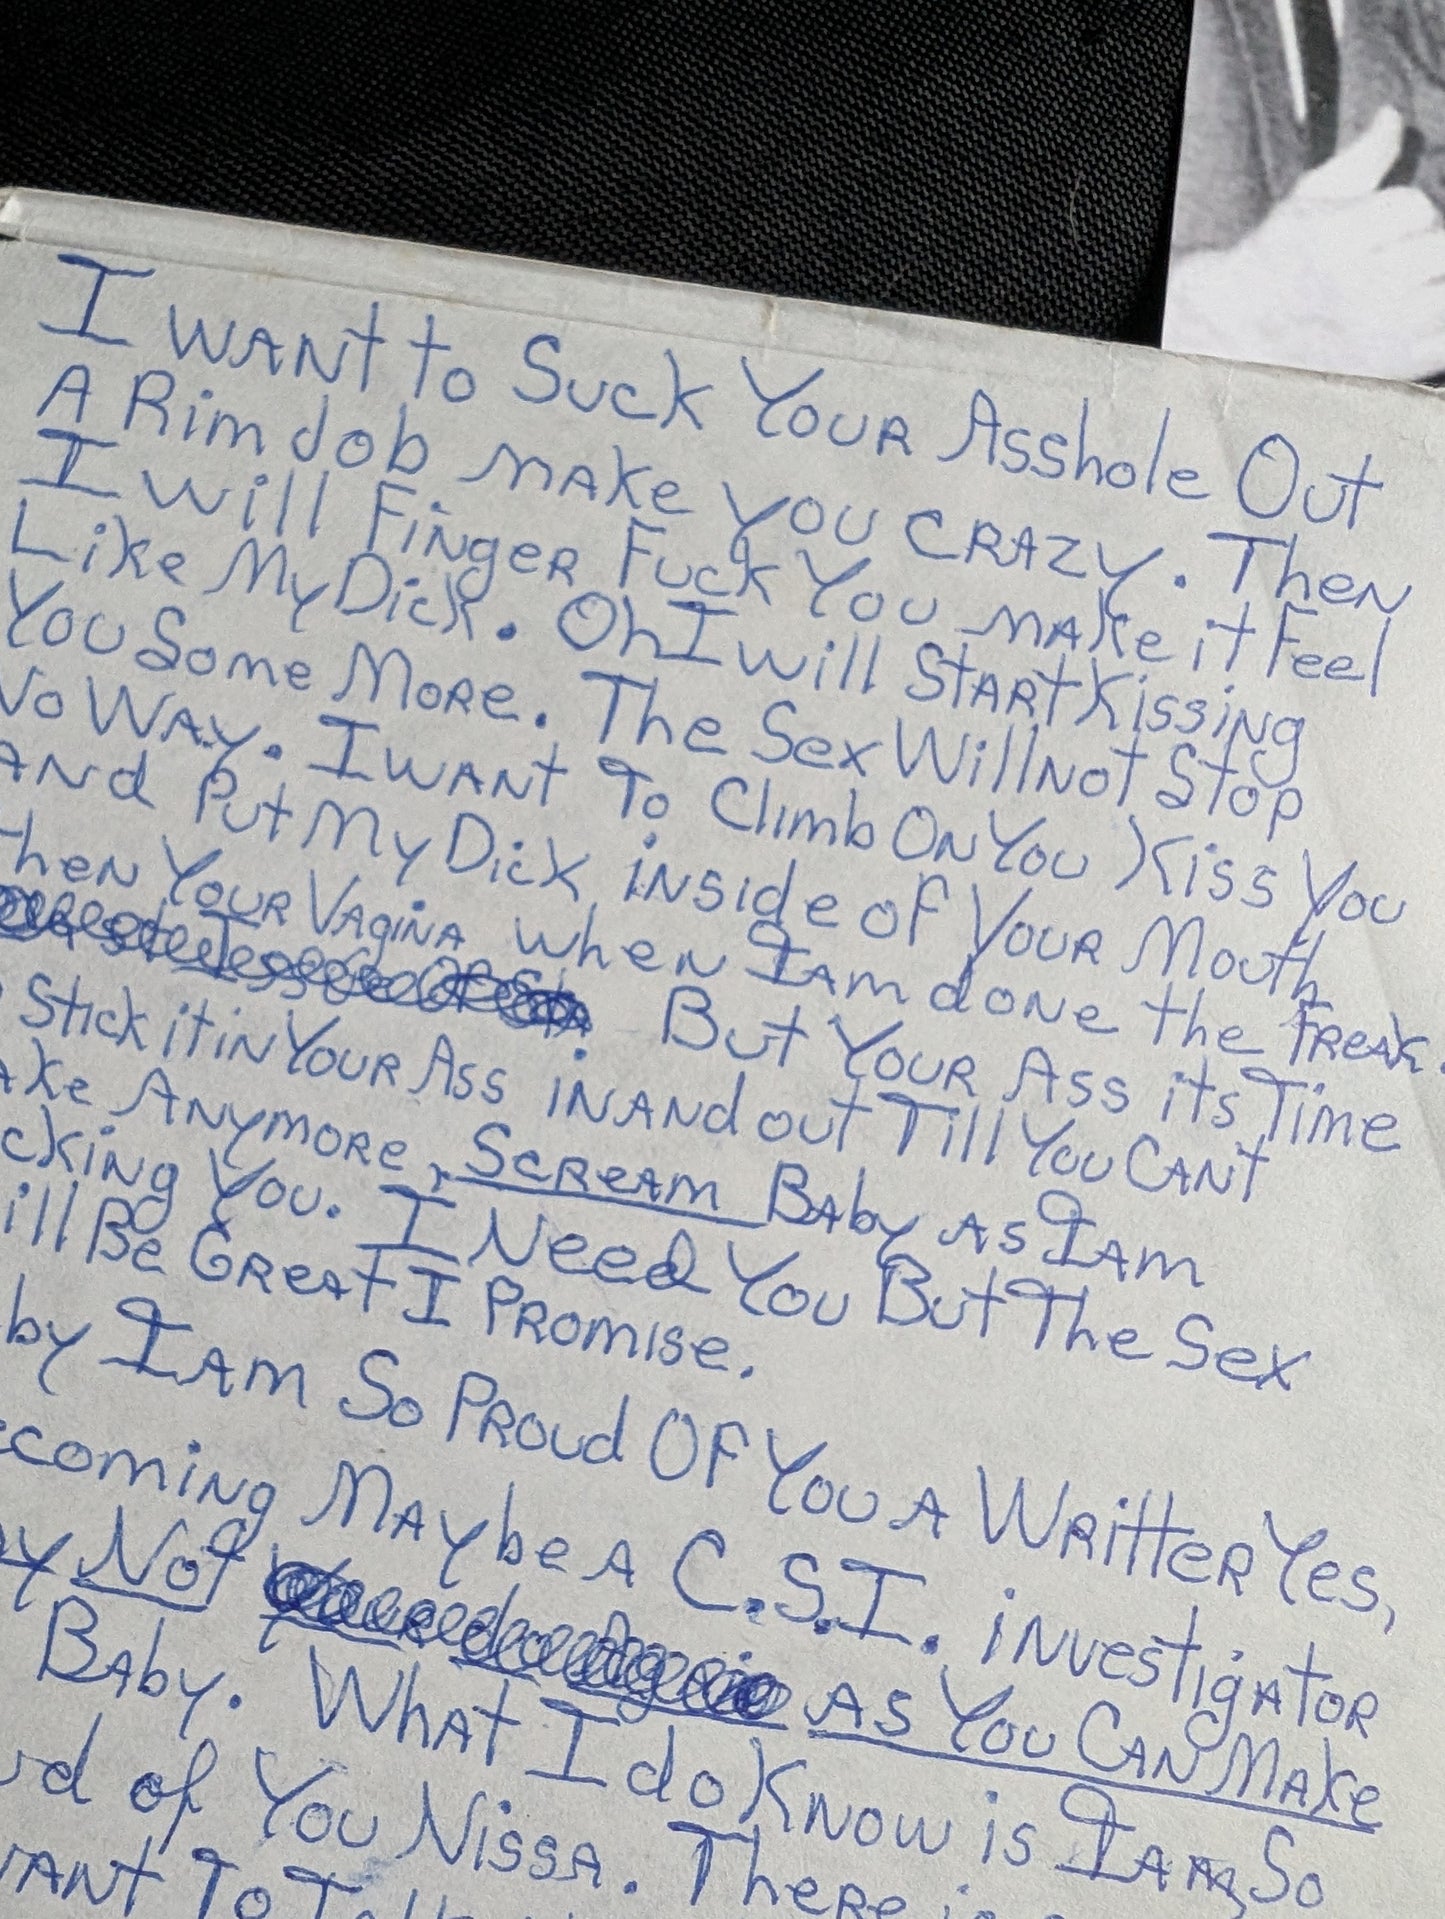 I WANT to Suck YOUR Asshole Out
A Rim Job MAKe YOU CRAZY. Then
I will Finger Fuck You MAKe it Feel
Like My Dick. Oh I will START Kissing
You Some More. The Sex Will Not Stop
No WAY. I WANT To Climb On You Kiss You
And Put My Dick inside of Your Mouth
Then Your VAginA when I Am done the FreAk.
But Your Ass its Time
Stick it in Your Ass in And out Till You CANt
Ake Anymore, SCReAM BAby As I AM
cking You. I Need You But The Sex
ill Be GreAt I Promise.
by I Am So Proud Of You A Writter Yes,
coming MAybe A C.S.I. investigAtor
y Not As You CAN MAke
BAby. WhAt I do Know is I Am So
d of You NissA. There
ANT To